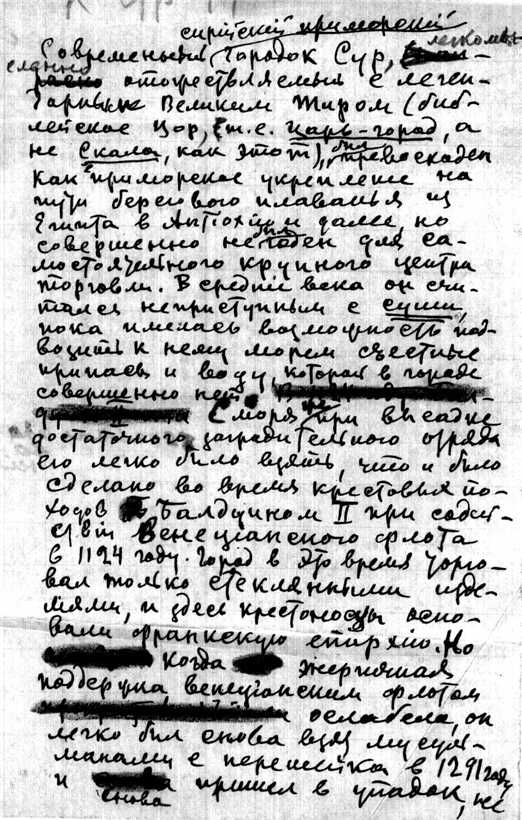 сирійскій приморскій
Современный городок Сур, легкомы-
сленно отожествляемый с леген-
дарным Великим Тиром (биб-
лейское Цор, т.е. царь-город, а
не скала, как этот), был превосходен
как приморское укрепление на
пути берегового плаванья из
Египта в Антіохію и далее, но
совершенно не годен для са-
мостоятельного крупного центра
торговли. В средніе века он счи-
тался неприступным с суши,
пока имелась возможность под-
возить к нему морем съестные
припасы и воду, которой в городе
совершенно нет.
С моря же при высадке
достаточного заградительного отряда
его легко было взять, что и было
сделано во время крестовых по-
ходов Балдуином II при содей-
ствіи Венеціанского флота
в 1124 году. Город в это время торго-
вал только стеклянными изде-
ліями, и здесь крестоносцы осно-
вали франкскую епархію. Но
когда
поддержка венеціанским флотом
ослабела, он
легко был снова взят мусуль-
манами с перешейка в 1291 году
и снова пришел в упадок, не